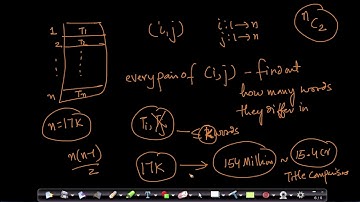 1 T1
2 T2
n Tn
(i,j) i:1→n
j:1→n
nC2
every pair of (i,j) - find out
how many words
they differ in
n=17K
n(n-1)
2
17K → 154 Million ~ 15.4 Cr
Title comparisons
words